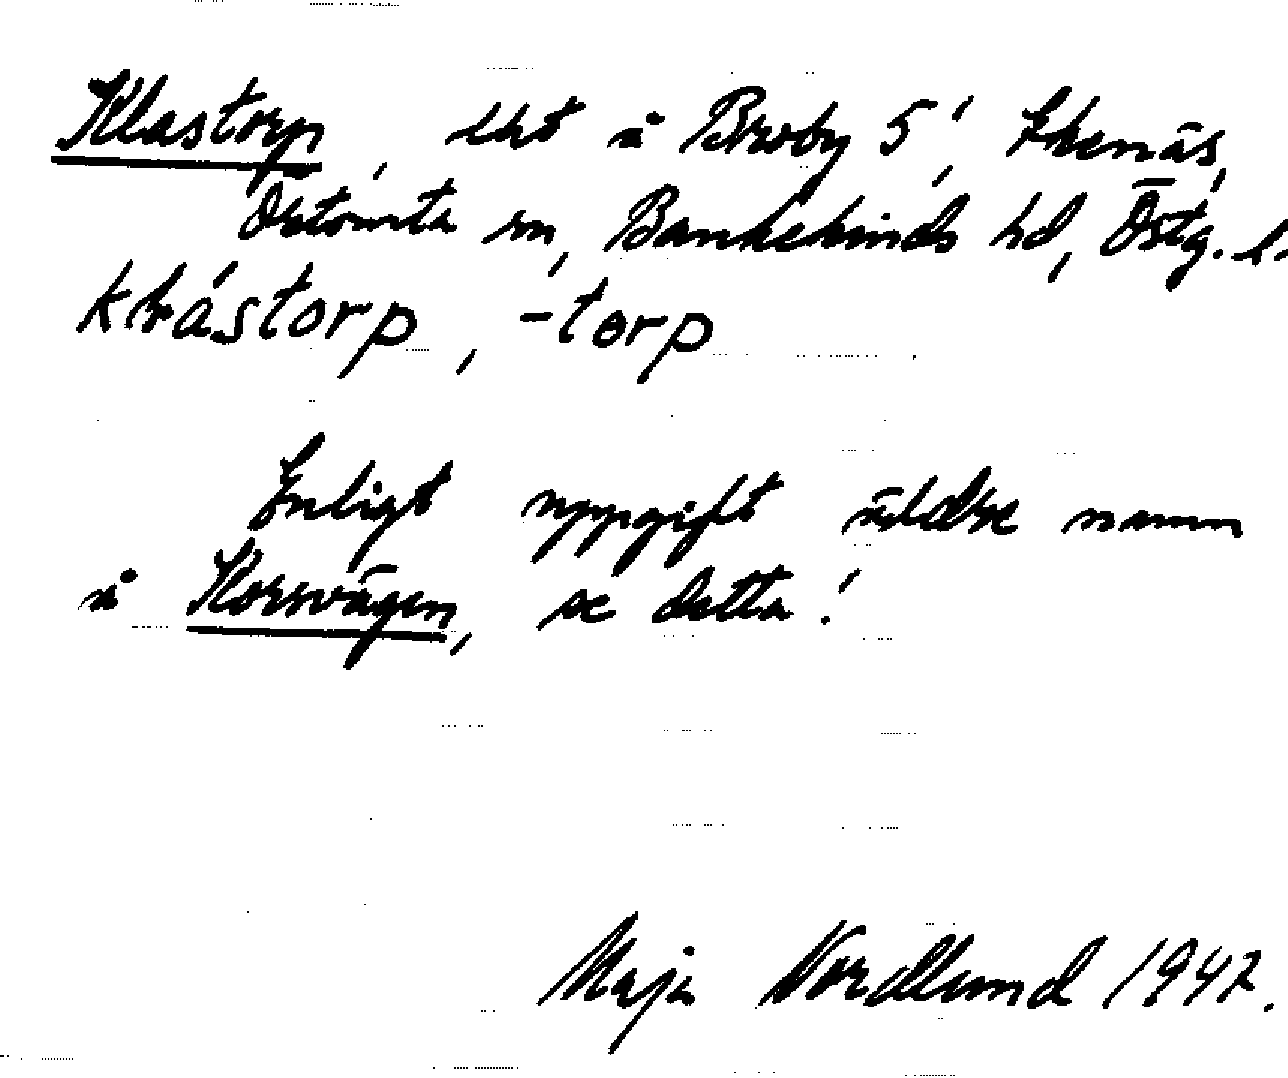 Klastorp, lht å Broby 5', Ekenäs,
Östomta sn, Bankekinds hd, Östg. l
klrástorp, -torp
Enligt uppgift äldre namn
å Korsvägen, se detta!
Maja Nordlund 1947.